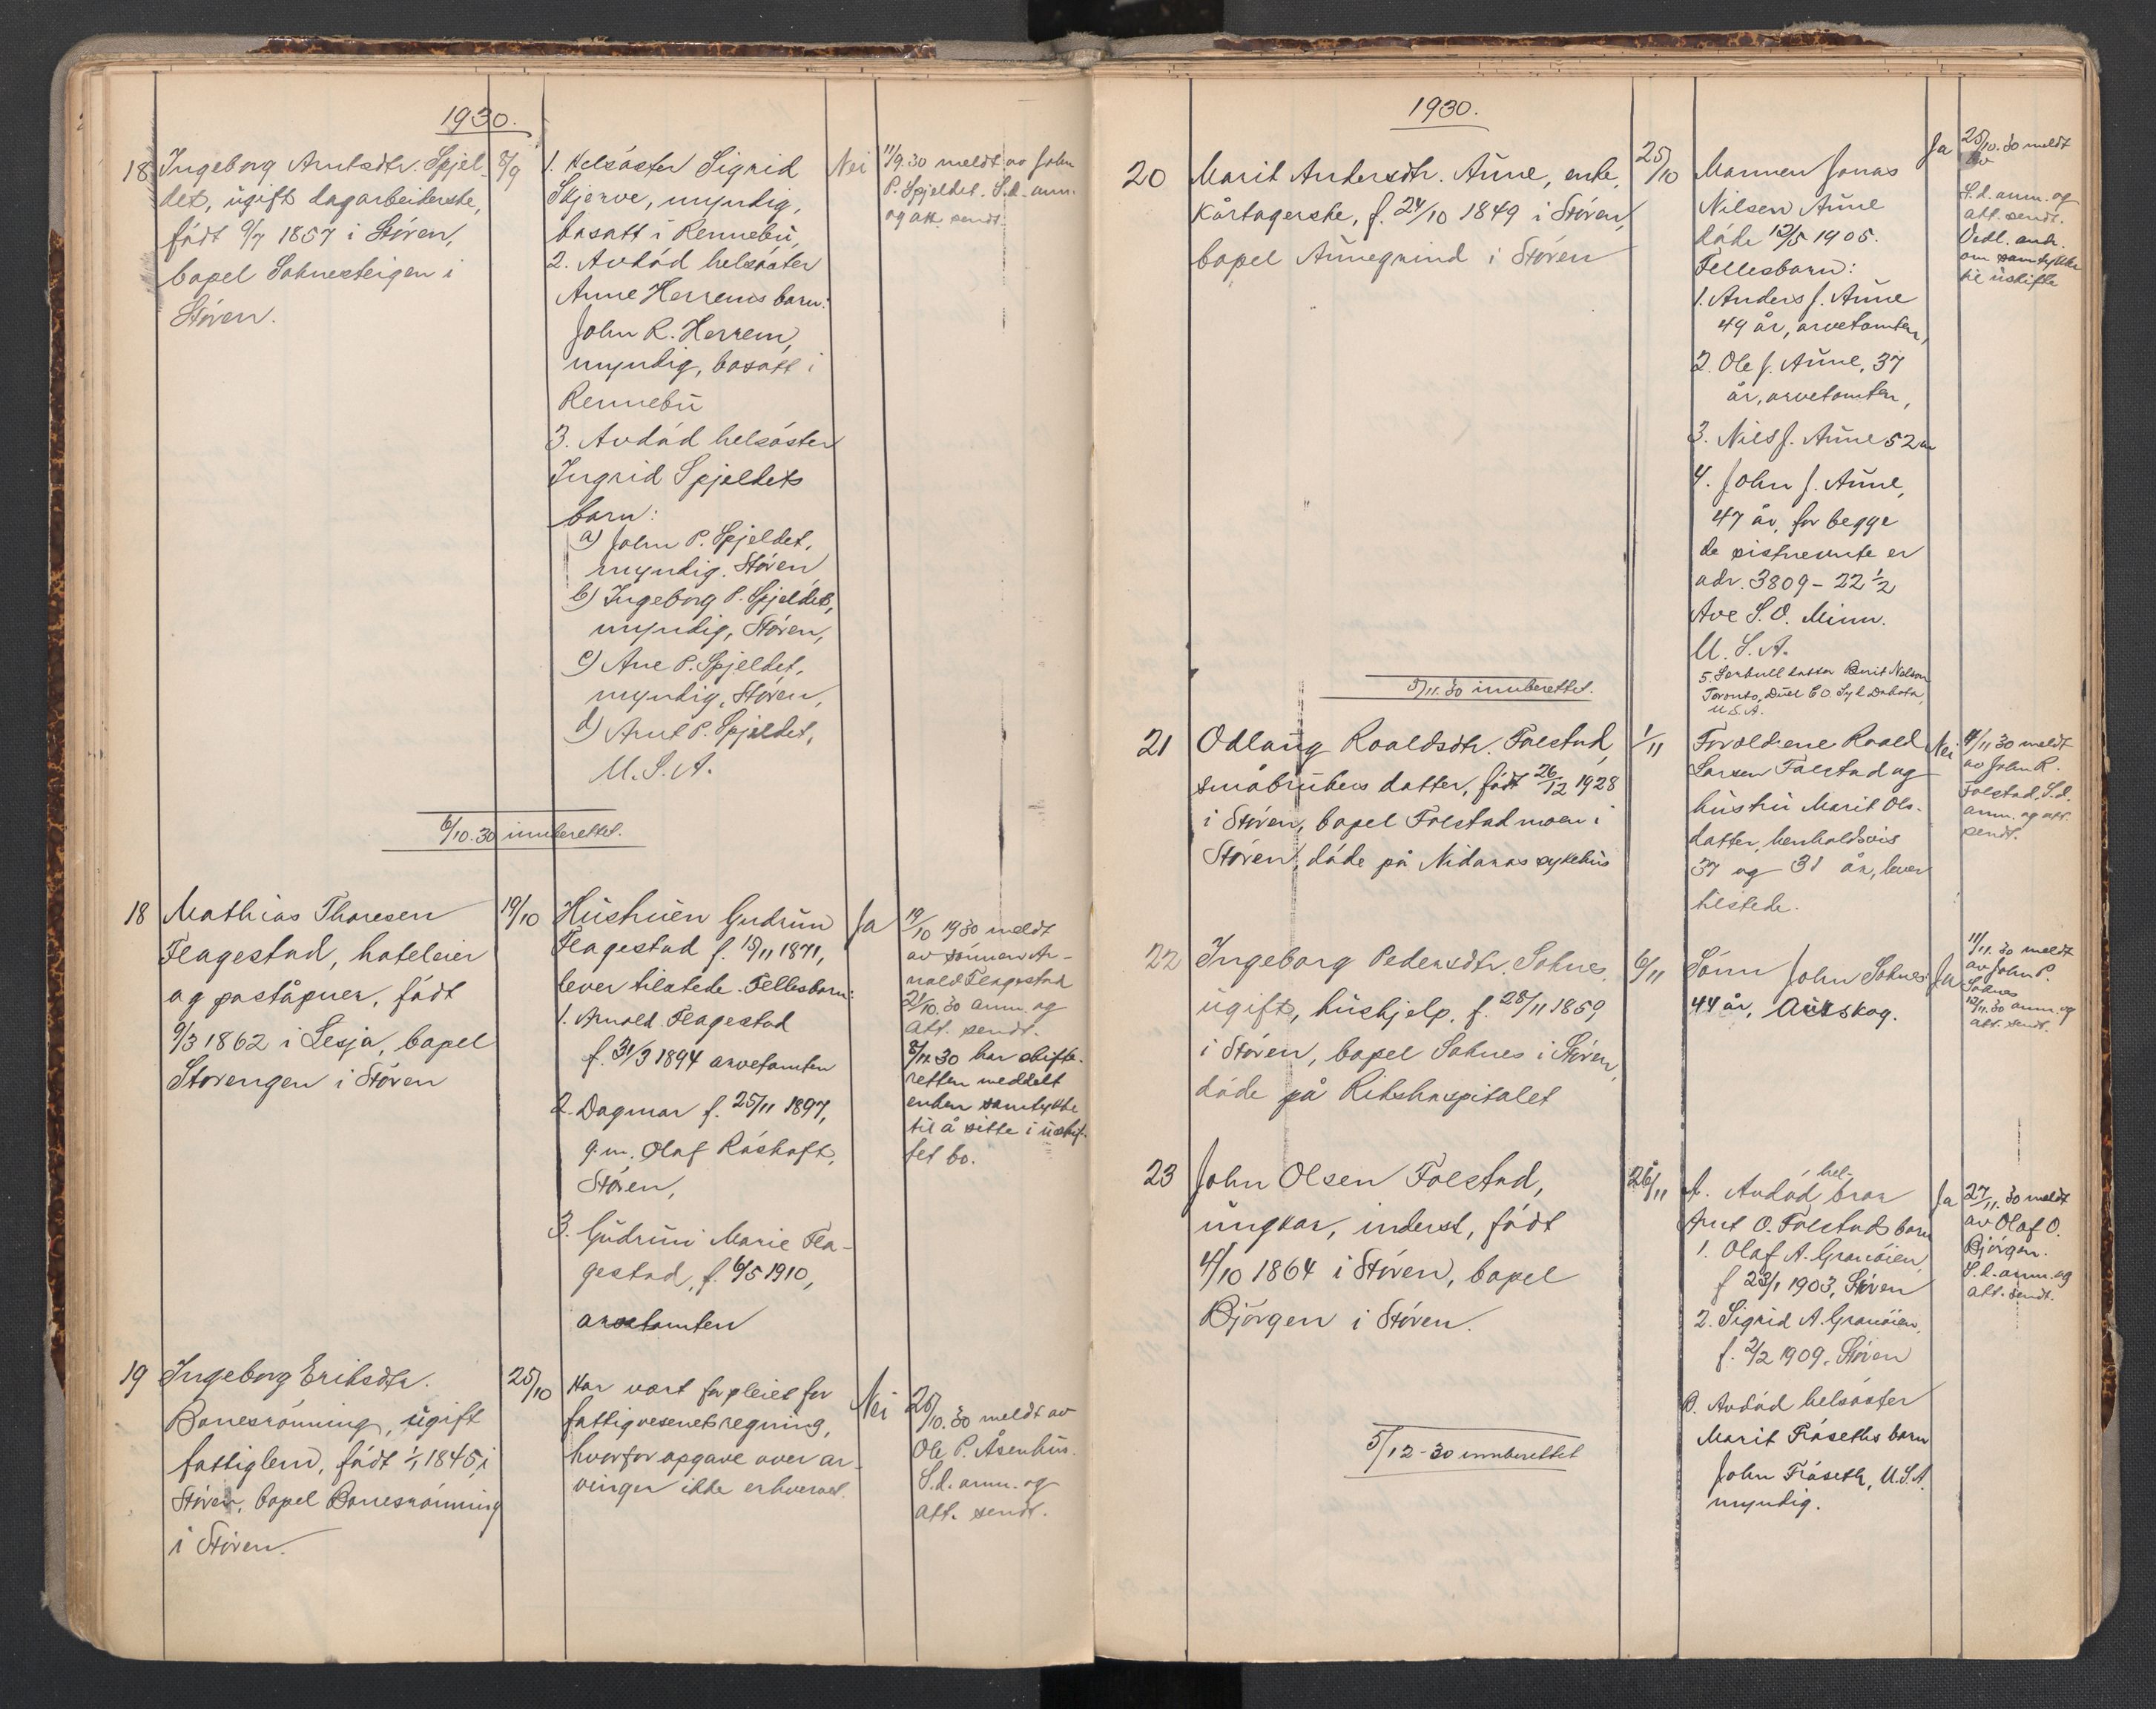 1930.
18 Ingeborg Arntsdtr. Spjel-
det, ugift dagarbeiderske,
født 9/7 1857 i Støren,
bopel Soknesteigen i
Støren.
8/9
1. Helsøster Sigrid
Skjerve, myndig,
bosatt i Rennebu,
2. Avdød helsøster
Anne Herrems barn:
John R. Herrem,
myndig, bosatt i
Rennebu
3. Avdød helsøster
Ingrid Spjeldets
barn:
a) John P. Spjeldet,
myndig. Støren
b) Ingeborg P. Spjeldet,
myndig, Støren,
c) Ane P. Spjeldet,
myndig, Støren,
d) Arnt P. Spjeldet,
U.S.A.
Nei
11/9.30 meldt av John
P. Spjeldet. S.d. anm.
og att. sendt.
6/10.30 innberettet.
18 Mathias Thoresen
Flagestad, hoteleier
og poståpner, født
9/3 1862 i Lesja, bopel
Storengen i Støren
19/10
Hustruen Gudrun
Flagestad f. 15/11 1871,
lever tilstede. Fellesbarn:
1. Arnold Flagestad
f. 31/3 1894 arvetomten
2. Dagmar f. 25/11 1897,
g.m. Olaf Røshaft,
Støren,
3. Gudrun Marie Fla-
gestad, f. 6/5 1910,
arvetomten
Ja
19/10 1930 meldt
av sønnen Ar-
nold Flagestad
21/10.30 anm. og
att. sendt.
8/11.30 har skifte-
retten meddelt
enken samtykke
til å sitte i uskif-
tet bo.
19 Ingeborg Eriksdtr.
Bonesrønning, ugift
fattiglem, født 1/1 1845 i
Støren, bopel Bonesrønning
i Støren.
25/10
Har vært forpleiet for
fattigvesenets regning,
hvorfor opgave over ar-
vinger ikke erhvervet.
Nei
26/10.30 meldt av
Ole P. Åsenhus.
S.d. anm. og
att. sendt.
1930.
20 Marit Andersdtr. Aune, enke,
kårtagerske, f. 24/10 1849 i Støren,
bopel Aunegrind i Støren
25/10
Mannen Jonas
Nilsen Aune
døde 12/5 1905.
Fellesbarn:
1. Anders J. Aune
49 år, arvetomten,
2. Ole J. Aune, 37
år, arvetomten,
3. Nils J. Aune 52 år
4. John J. Aune,
47 år, for begge
de sistnevnte er
adr. 3809 - 22 1/2
Ave S.O. Minn.
U.S.A.
5. Berit Nelson
Toronto, Duel C.O. Dakota,
U.S.A.
Ja
25/10.30 meldt
av
S.d. anm. og
att. sendt.
Vedl. ansk.
om samtykke
til uskifte
5/11.30 innberettet.
21 Odlaug Roaldsdtr. Folstad,
småbrukers datter, født 26/12 1928
i Støren, bopel Folstadmoen i
Støren, døde på Nidaros sykehus
1/11
Foreldrene Roald
Larsen Folstad og
hustru Marit Ols-
datter, henholdsvis
37 og 31 år, lever
tilstede.
Nei
4/11 30 meldt
av John R.
Folstad. S.d.
anm. og att.
sendt.
22 Ingeborg Pedersdtr. Soknes,
ugift, hushjelp, f. 28/11 1859
i Støren, bopel Soknes i Støren,
døde på Rikshospitalet
6/11
Sønn John Soknes
44 år, Aurskog.
Ja
11/11.30 meldt
av John P.
Soknes
12/11.30 anm. og
att. sendt.
23 John Olsen Folstad,
ungkar, inderst, født
4/10 1864 i Støren, bopel
Bjørgen i Støren.
26/11
A. Avdød hel-bror
Arnt O. Folstads barn
1. Olaf A. Granøien,
f 23/1 1903, Støren
2. Sigrid A. Granøien,
f. 2/2 1909, Støren
B. Avdød helsøster
Marit Frøseths barn
John Frøseth, U.S.A.
myndig.
Ja
27/11.30 meldt
av Olaf O.
Bjørgen.
S.d. anm. og
att. sendt.
5/12-30 innberettet